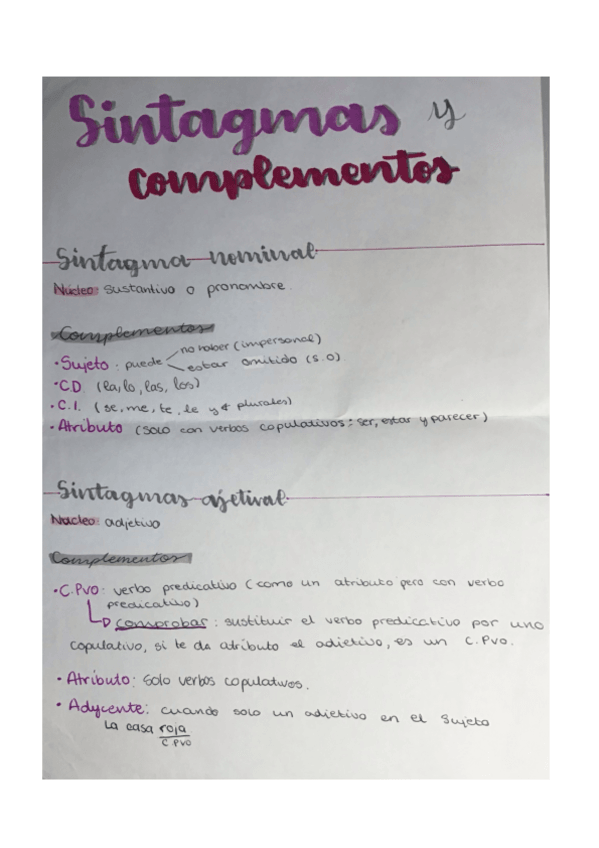 Sintagmas y
complementos
Sintagma nominal
Núcleo: sustantivo o pronombre.
Complementos
• Sujeto: puede no haber (impersonal)
estar omitido (S.O)
• CD (la, lo, las, los)
• C.I. (se, me, te, le y plurales)
• Atributo (solo con verbos copulativos: ser, estar y parecer)
Sintagmas ajetival
Núcleo: adjetivo
Complementos
• C.Pvo: verbo predicativo (como un atributo pero con verbo
predicativo)
comprobar: sustituir el verbo predicativo por uno
copulativo, si te da atributo el adjetivo, es un C.Pvo.
• Atributo: Solo verbos copulativos.
• Adycente: cuando solo un adjetivo en el sujeto
La casa roja
C.Pvo